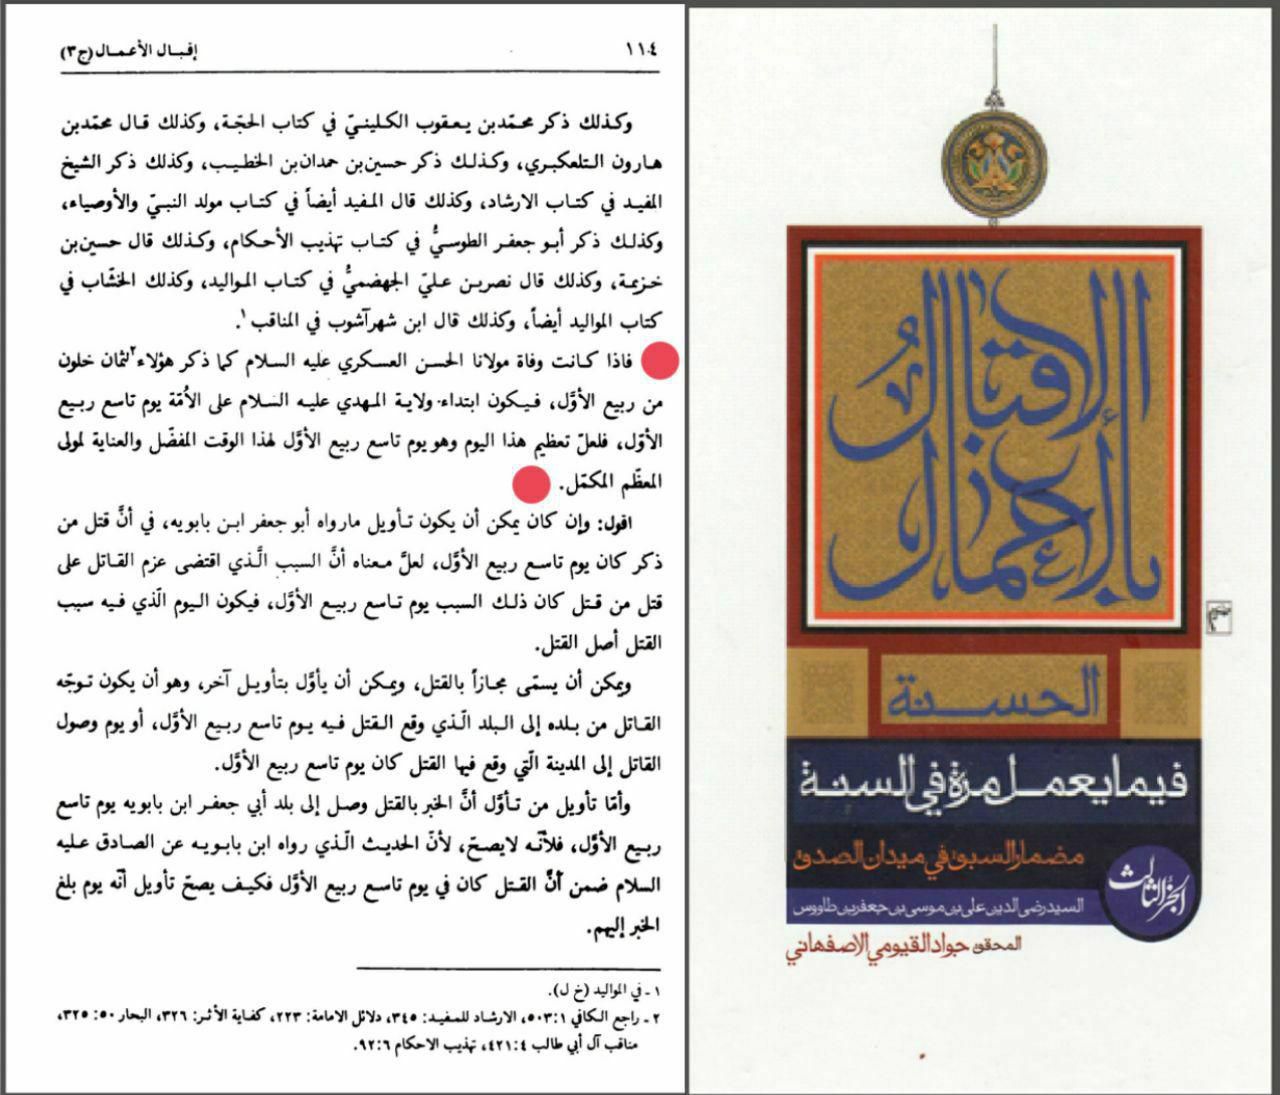 إقبـال الأعمـال (ج ٣)
١١٤
وكـذلك ذكر محـمّدبن يـعقوب الكـلينيّ في كتاب الحجّـة، وكذلك قـال محمّدبن
هـارون التـلعكبـري، وكـذلـك ذكر حسين‌بن حمدان‌بن الخطيب، وكذلك ذكر الشيخ
المفيـد في كتاب الارشاد، وكذلك قال المـفيد أيضاً في كتـاب مولد النبـيّ والأوصياء،
وكذلـك ذكر أبـو جعفـر الطوسـيُّ في كتـاب تهذيب الأحكـام، وكـذلك قال حسين‌بن
خـزيمـة، وكذلك قال نصربـن عـليّ الجهضمـيُّ في كتـاب المـواليد، وكـذلك الخشّاب في
كتاب المواليد أيضـاً، وكذلك قال ابن شهرآشوب في المناقب١.
فاذا كـانت وفاة مولانا الحسن العسكري عليه السلام كما ذكر هؤلاء٢ لثمان خلون
من ربيع الأوَّل، فـيكون ابتداء ولاية المـهدي عليـه السلام على الأمّة يوم تاسع ربيع
الأوّل، فلعلّ تعظيم هذا اليوم وهو يوم تاسع ربيع الأوَّل لهذا الوقت المفضّل والعناية لمولى
المعظّم المكمّل.
اقول: وإن كان يمكن أن يكون تـأويل مارواه أبو جعفر ابـن بابويه، في أنَّ قتل من
ذكر كان يوم تاسـع ربيع الأوَّل، لعلَّ مـعناه أنَّ السبب الَّـذي اقتضى عزم القـاتل على
قتل من قـتل كان ذلـك السبب يوم تـاسع ربيـع الأوَّل، فيكون اليـوم الّذي فيـه سبب
القتل أصل القتل.
ويمكن أن يسمّى مجازاً بالقتل، ويمكـن أن يأوَّل بتأويـل آخر، وهو أن يكون توجّه
القـاتل من بـلده إلى البـلد الّـذي وقع القـتل فيه يـوم تاسع ربـيع الأوَّل، أو يوم وصول
القاتل إلى المدينة الّتي وقع فيها القتل كان يوم تاسع ربيع الأوَّل.
وأمّا تأويل من تـأوَّل أنَّ الخبر بالقتل وصـل إلى بلد أبي جعفـر ابن بابويه يوم تاسع
ربيـع الأوَّل، فلأنّـه لايصحّ، لأنّ الحديث الّـذي رواه ابن بابـويـه عن الصـادق علـيه
السلام ضمن أنَّ القتـل كان في يوم تاسع ربيع الأوَّل فكـيف يصحّ تأويل أنّه يوم بلغ
الخبر إليهم.
١ ـ في المواليد (خ ل).
٢ ـ راجع الكافي ٥٠٣:١، الارشاد للمفيد: ٣٤٥، دلائل الامامة: ٢٢٣، كفاية الأثر: ٣٢٦، البحار ٥٠: ٣٢٥،
مناقب آل أبي طالب ٤٢١:٤، تهذيب الاحكام ٩٢:٦.
الإقبال
بالأعمال
الحسنة
فيما يعمل مرة في السنة
مضمار السبق في ميدان الصدق
الجزء الثالث
السيد رضي الدين علي بن موسى بن جعفر بن طاووس
المحقق جواد القيومي الاصفهاني